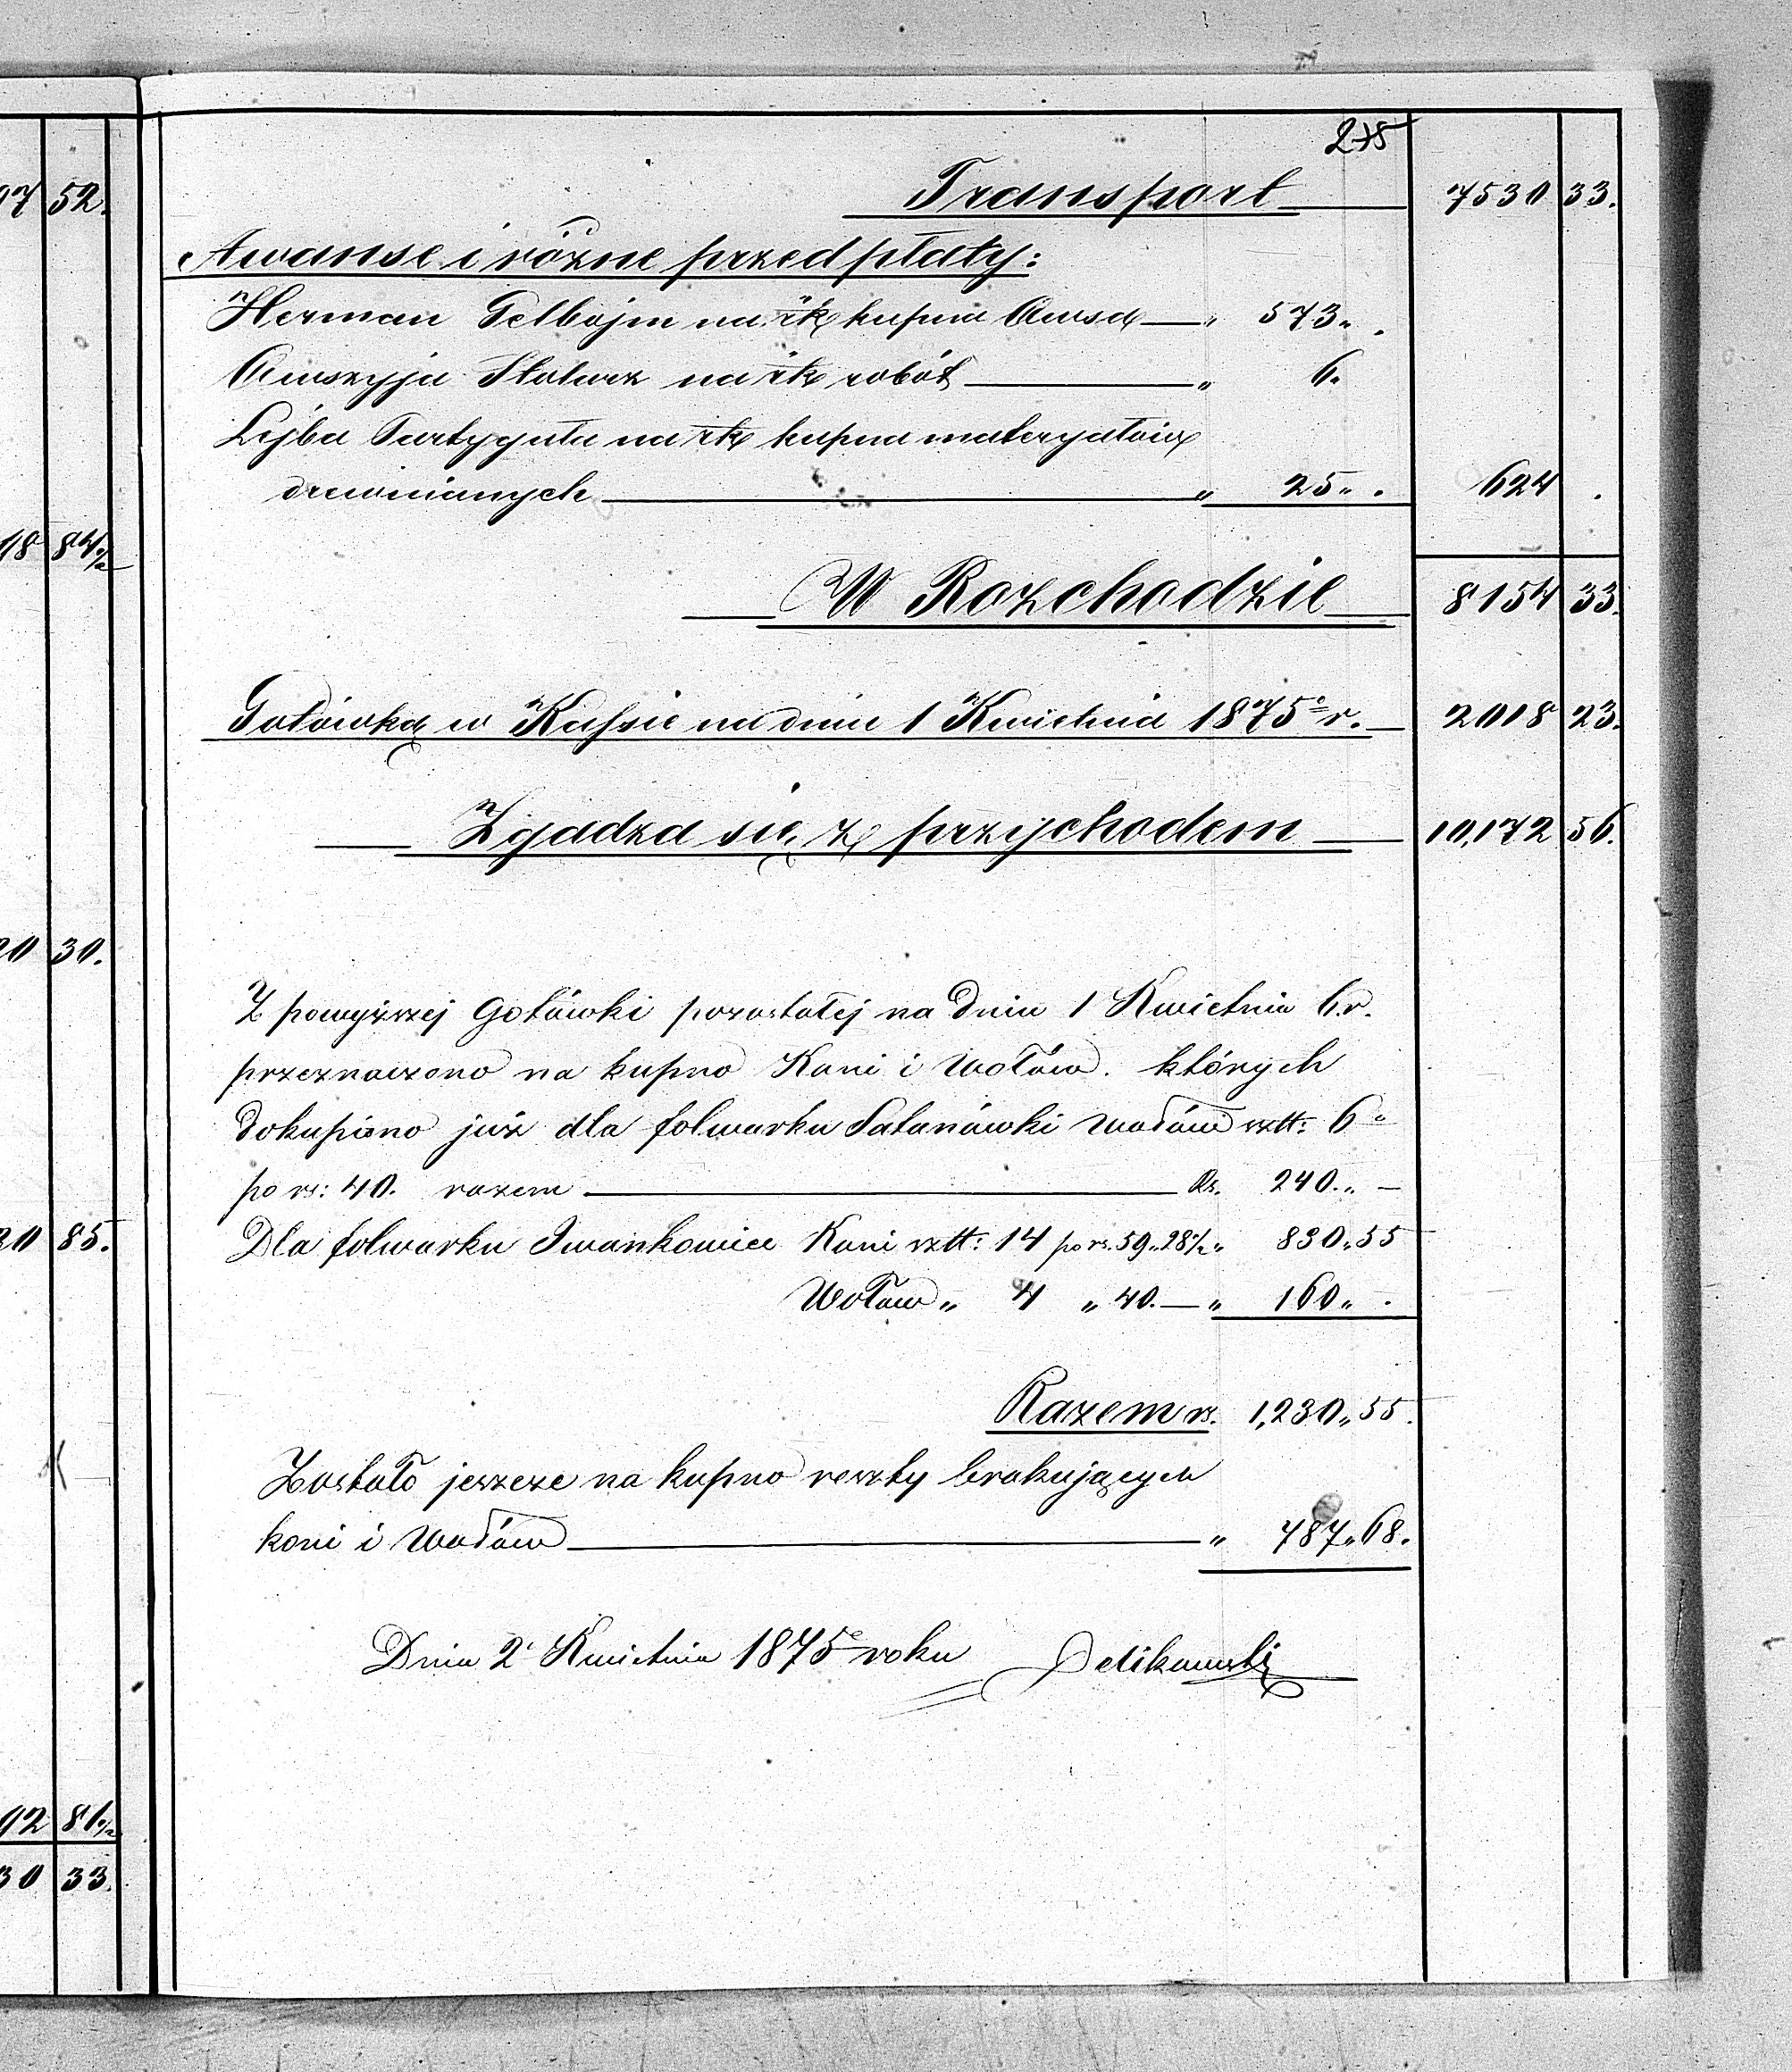 52.
84 1/2
30.
85.
92 81 1/2
30 33.
275
Transport 7530 33.
Awanse i różne przedpłaty:
Herman Gelbojm na rk kupna Owsa — „ 573 „ .
Owszyja Stolarz na rk robót — „ 6.
Lejba Partyguła na rk kupna materyałów
drewnianych — „ 25 „ . 624 .
W Rozchodzie 8154 33.
Gotówką w Kassie na dniu 1 Kwietnia 1875 r. — 2018 23.
Zgadza się z przychodem — 10,172 56.
Z powyższej Gotówki pozostałej na Dniu 1 Kwietnia b.r.
przeznaczono na kupno Koni i Wołów. których
dokupiono już dla folwarku Satanówki Wołów sztt: 6 „
po rs: 40. razem — Rs. 240. „ —
Dla folwarku Iwankowice Koni sztt: 14 po rs. 59 „ 28 1/2 „ 830 „ 55
Wołów „ 4 „ 40. — „ 160 „ .
Razem rs. 1,230 „ 55.
Zostało jeszcze na kupno reszty brakujących
koni i Wołów — „ 787 „ 68.
Dnia 2 Kwietnia 1875 roku